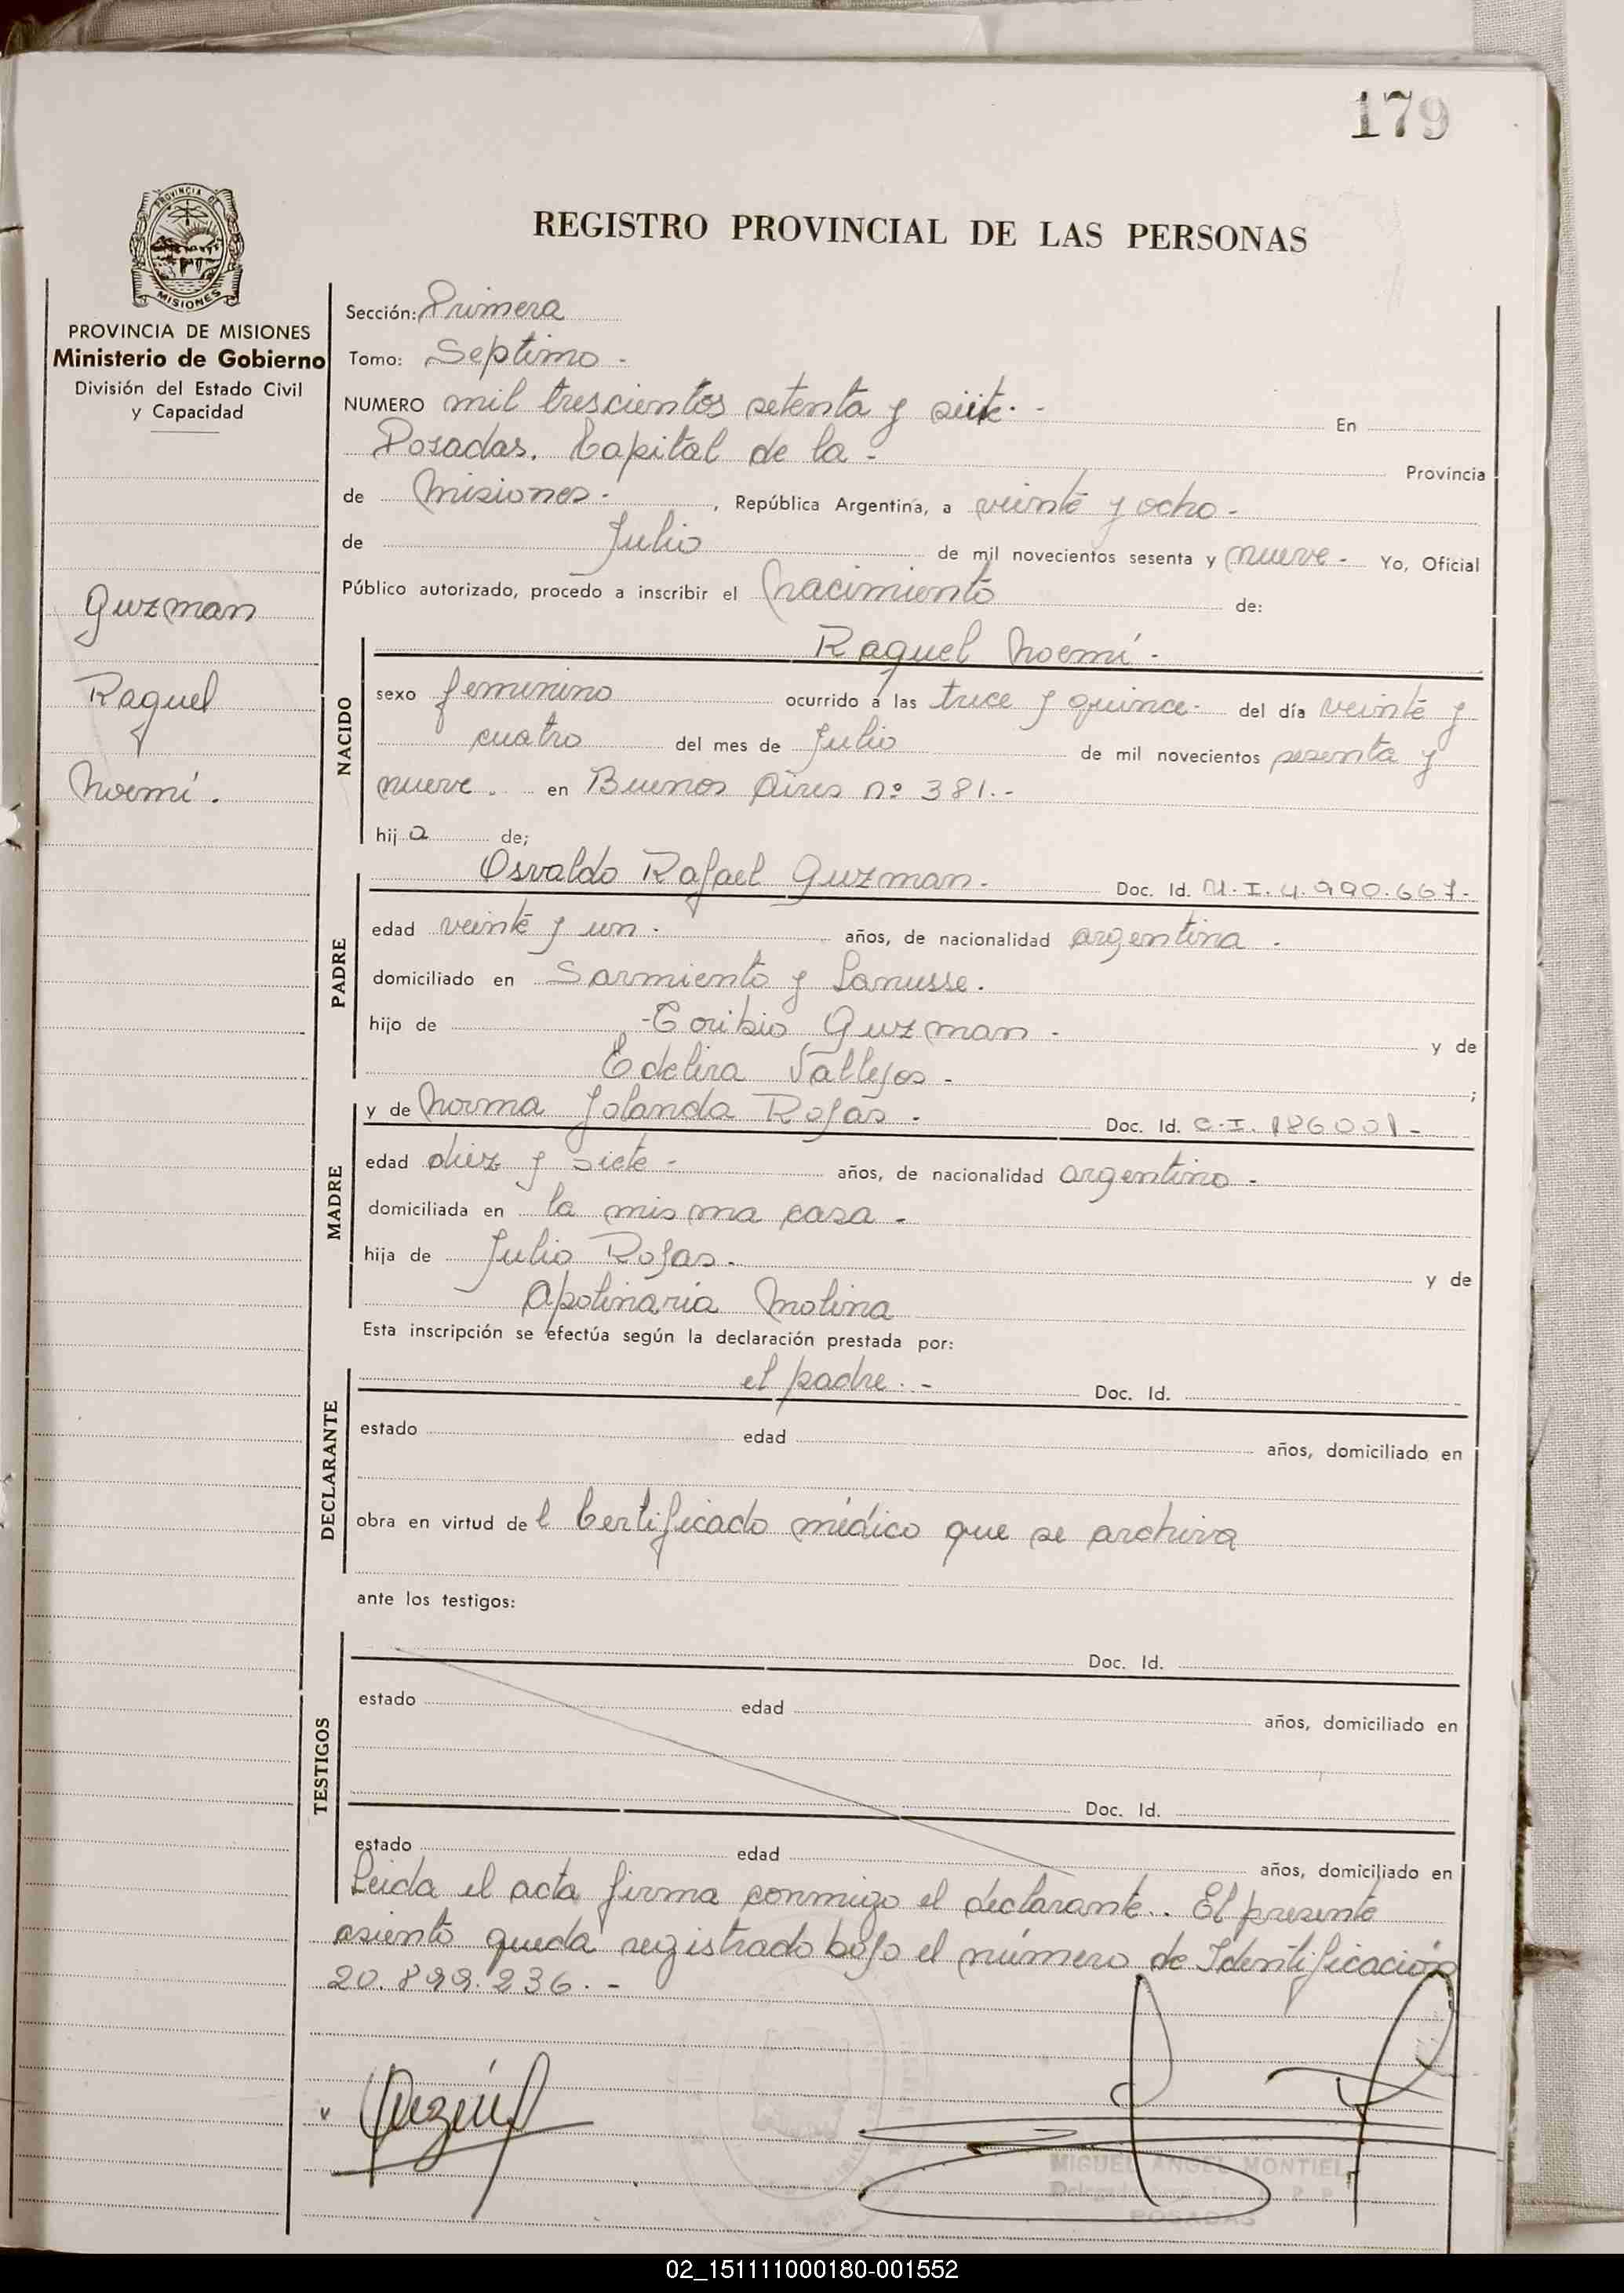 179
PROVINCIA DE
MISIONES
REGISTRO PROVINCIAL DE LAS PERSONAS
PROVINCIA DE MISIONES
Ministerio de Gobierno
División del Estado Civil
y Capacidad
Guzman
Raquel
Noemí.
Sección: Primera
Tomo: Septimo -
NUMERO mil trescientos setenta y siete. - En
Posadas. Capital de la - Provincia
de Misiones - , República Argentina, a veinte y ocho -
de Julio de mil novecientos sesenta y nueve - Yo, Oficial
Público autorizado, procedo a inscribir el nacimiento de:
Raquel Noemí -
NACIDO
sexo femenino ocurrido a las trece y quince - del día veinte y
cuatro del mes de Julio de mil novecientos sesenta y
nueve. en Buenos Aires nº 381. -
hija de;
PADRE
Osvaldo Rafael Guzman - Doc. Id. M. I. 4.990.667 -
edad veinte y un - años, de nacionalidad argentina .
domiciliado en Sarmiento y Lanusse.
hijo de - Toribio Guzman - y de
Edelira Vallejos - ;
MADRE
y de Norma Yolanda Rojas - Doc. Id. C. I. 186001 -
edad diez y siete - años, de nacionalidad argentina -
domiciliada en la misma casa -
hija de Julio Rojas - y de
Apolinaria Molina
Esta inscripción se efectúa según la declaración prestada por:
DECLARANTE
el padre. - Doc. Id.
estado edad años, domiciliado en
obra en virtud del Certificado médico que se archiva
ante los testigos:
TESTIGOS
Doc. Id.
estado edad años, domiciliado en
Doc. Id.
estado edad años, domiciliado en
Leida el acta firma conmigo el declarante. El presente
asiento queda registrado bajo el número de Identificación
20.899.236. -
MIGUEL ANGEL MONTIEL
POSADAS
02_151111000180-001552